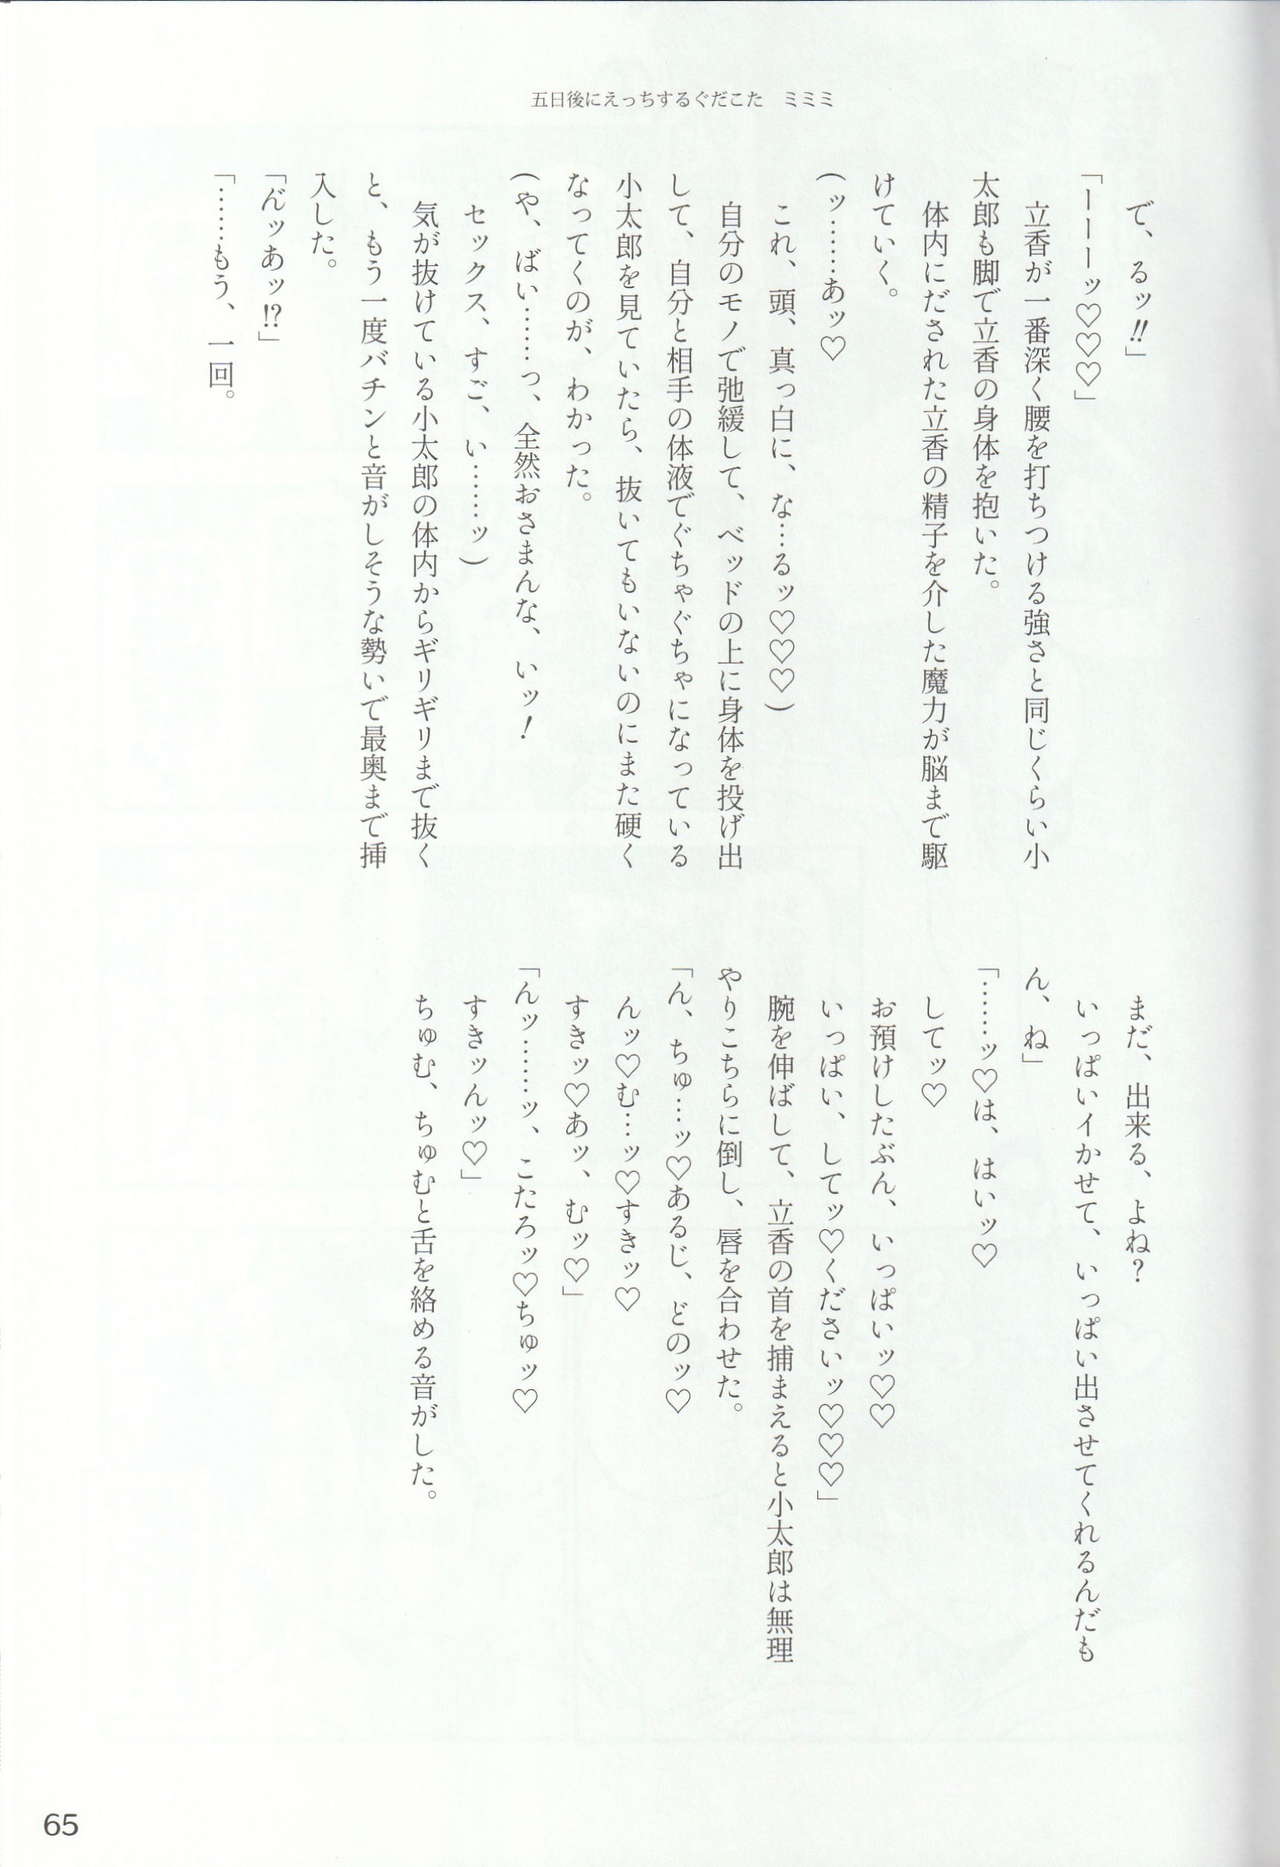 五日後にえっちするぐだこた　ミミミ
で、るッ!!」
「ーーーッ♡♡♡」
立香が一番深く腰を打ちつける強さと同じくらい小
太郎も脚で立香の身体を抱いた。
体内にだされた立香の精子を介した魔力が脳まで駆
けていく。
(ッ……あッ♡
これ、頭、真っ白に、な…るッ♡♡♡)
自分のモノで弛緩して、ベッドの上に身体を投げ出
して、自分と相手の体液でぐちゃぐちゃになっている
小太郎を見ていたら、抜いてもいないのにまた硬く
なってくのが、わかった。
(や、ばい……っ、全然おさまんな、いッ！
セックス、すご、い……ッ)
気が抜けている小太郎の体内からギリギリまで抜く
と、もう一度バチンと音がしそうな勢いで最奥まで挿
入した。
「ん゛ッあッ!?」
「……もう、一回。
まだ、出来る、よね？
いっぱいイかせて、いっぱい出させてくれるんだも
ん、ね」
「……ッ♡は、はいッ♡
してッ♡
お預けしたぶん、いっぱいッ♡♡
いっぱい、してッ♡くださいッ♡♡♡」
腕を伸ばして、立香の首を捕まえると小太郎は無理
やりこちらに倒し、唇を合わせた。
「ん、ちゅ…ッ♡あるじ、どのッ♡
んッ♡む…ッ♡すきッ♡
すきッ♡あッ、むッ♡」
「んッ……ッ、こたろッ♡ちゅッ♡
すきッんッ♡」
ちゅむ、ちゅむと舌を絡める音がした。
65